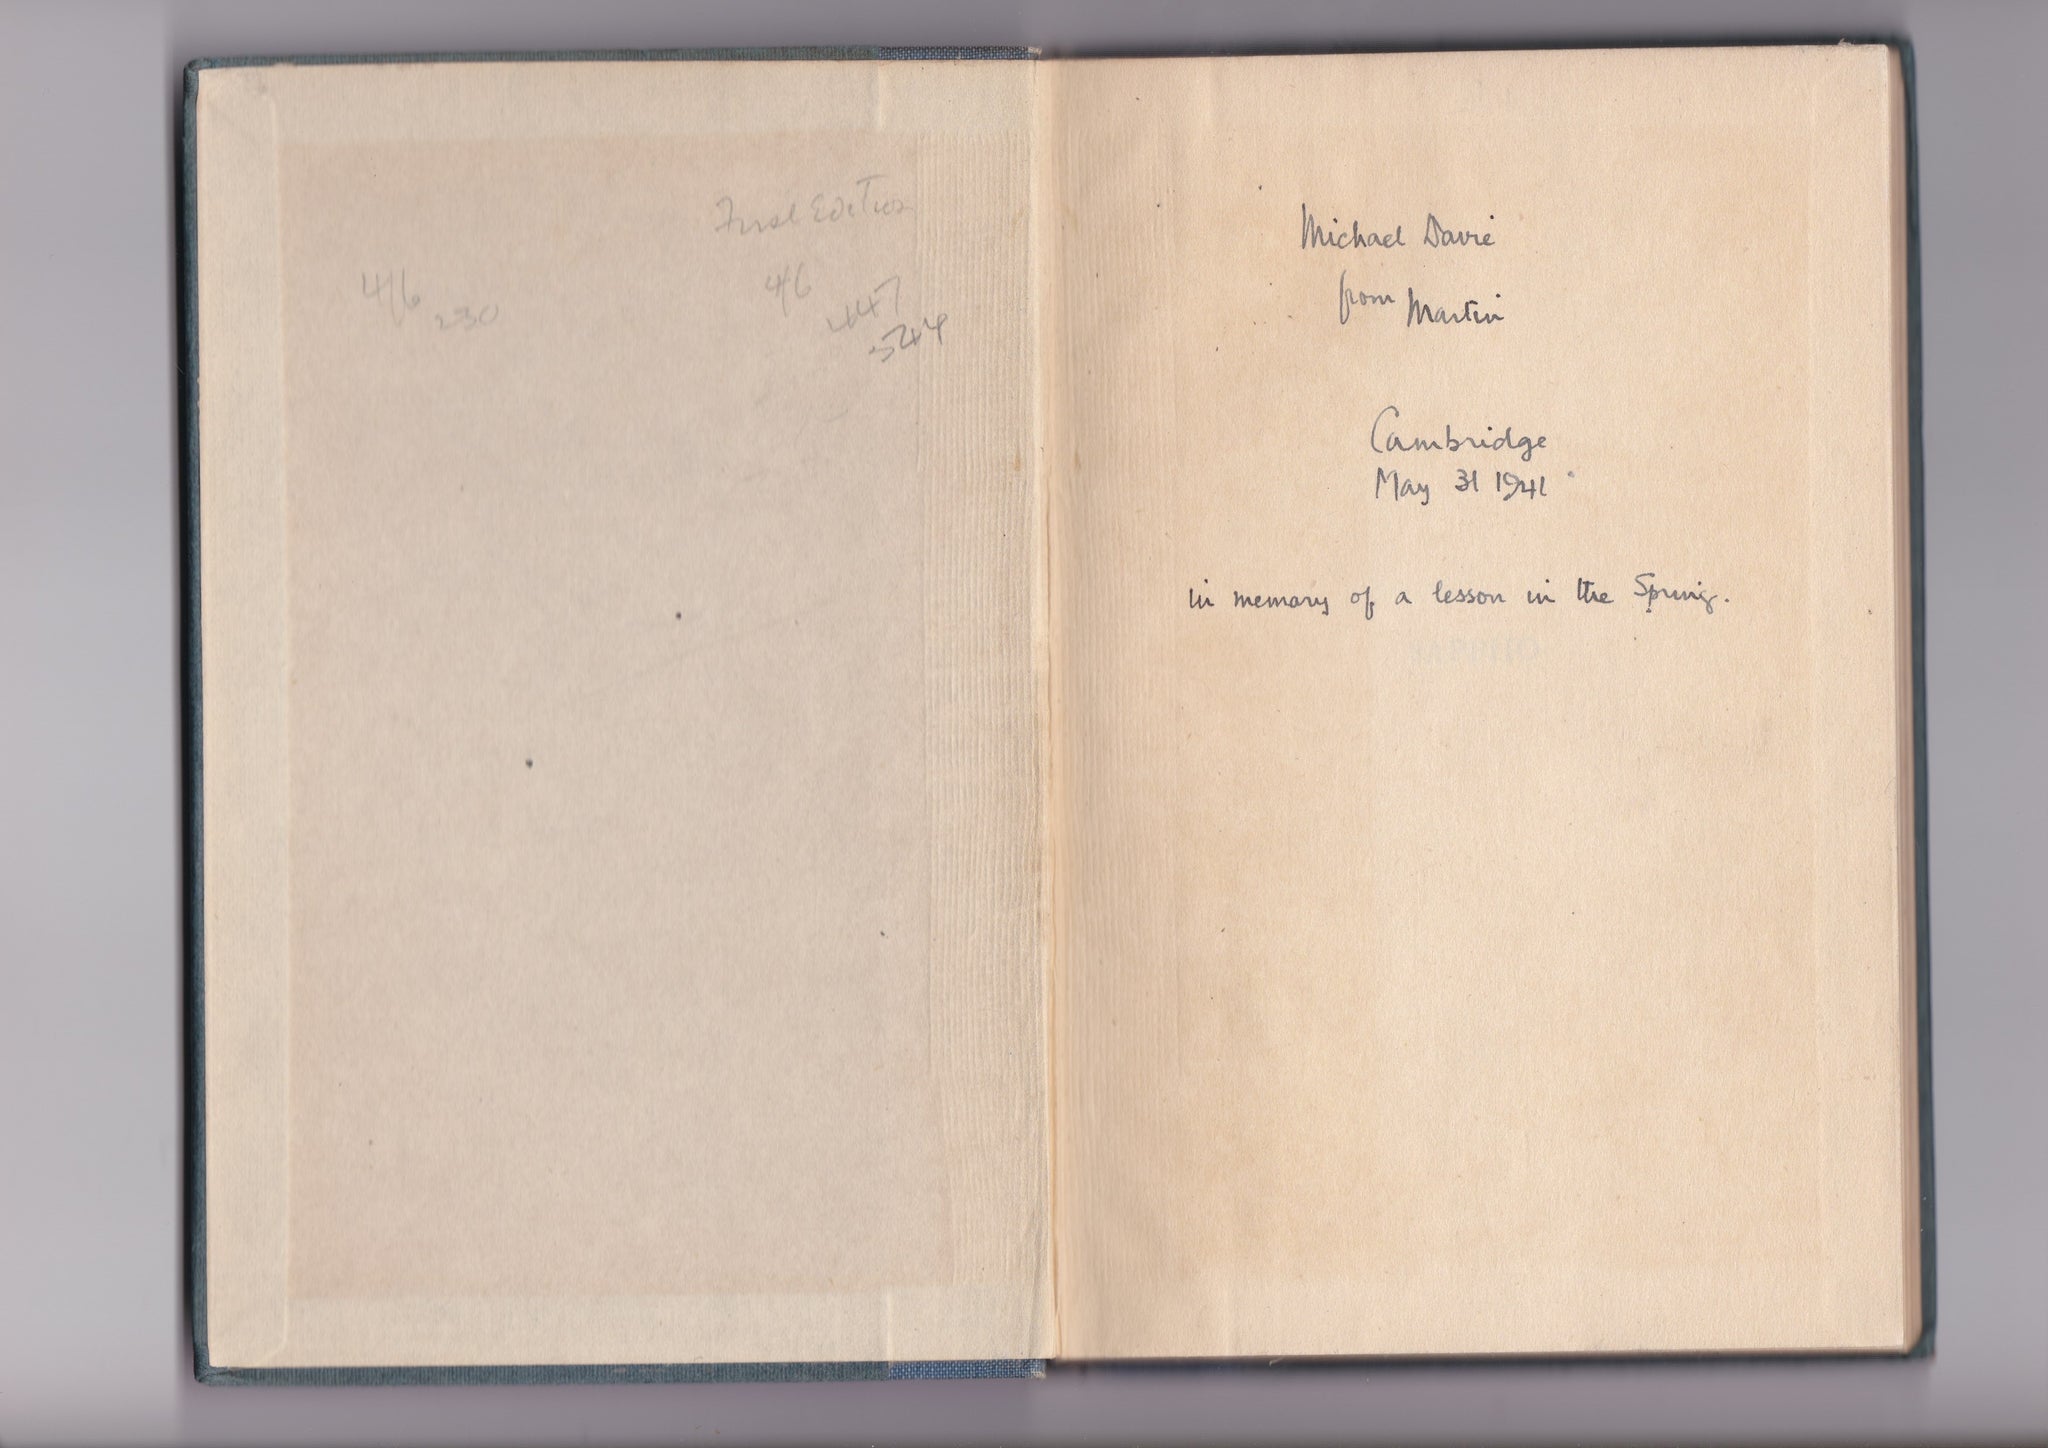 First Edition
4/6
230
4/6
447
544
Michael Davie
from Martin
Cambridge
May 31 1941
in memory of a lesson in the Spring.